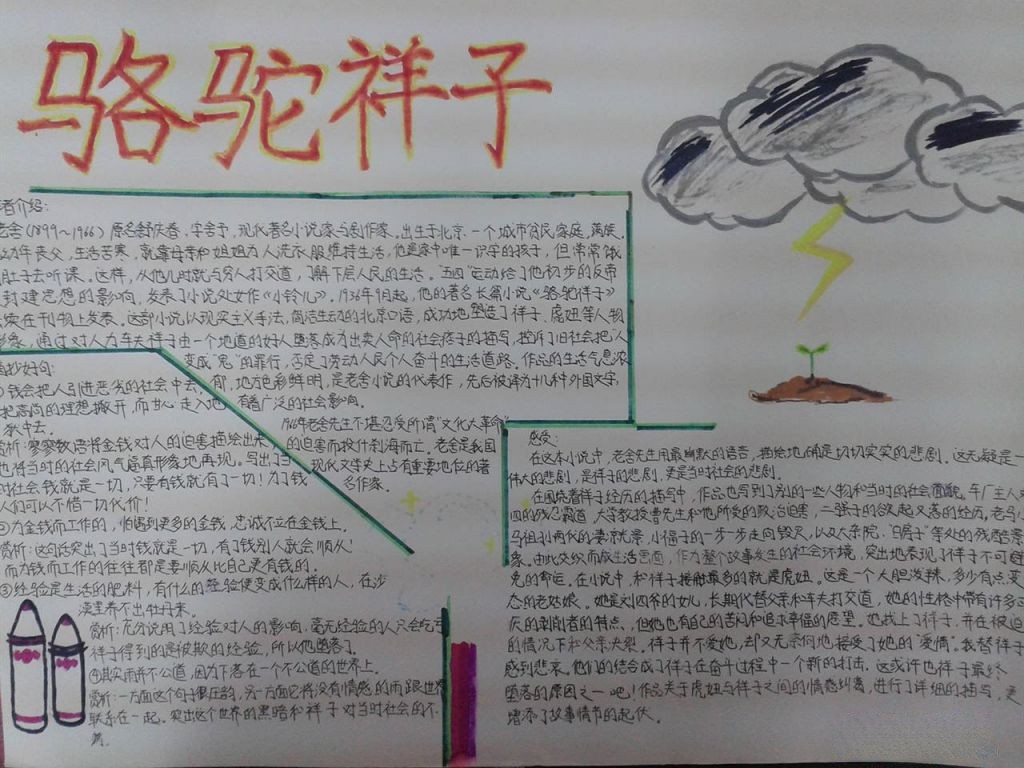 骆驼祥子
者介绍：
老舍(1899～1966)原名舒庆春，字舍予，现代著名小说家与剧作家。出生于北京一个城市贫民家庭，满族。
幼年丧父，生活苦寒，就靠母亲和姐姐为人洗衣服维持生活，他是家中唯一识字的孩子，但常常饿
肚子去听课。这样，从他儿时就与穷人打交道，了解下层人民的生活。"五四"运动给了他初步的反帝
封建思想的影响，发表了小说处女作《小铃儿》。1936年9月起，他的著名长篇小说《骆驼祥子》
连续在刊物上发表。这部小说以现实主义手法，简洁生动的北京口语，成功地塑造了祥子，虎妞等人物
形象，通过对人力车夫祥子由一个地道的好人堕落成为出卖人命的社会痞子的描写，控诉了旧社会把"人"
变成"鬼"的罪行，否定了劳动人民个人奋斗的生活道路。作品的生活气息浓
郁，地方色彩鲜明，是老舍小说的代表作，先后被译为十几种外国文字，
有着广泛的社会影响。
1966年老舍先生不堪忍受所谓"文化大革命"
的迫害而投什刹海而亡。老舍是我国
现代文学史上占有重要地位的著
名作家。
摘抄好句：
①钱会把人引进恶劣的社会中去，
把高尚的理想撇开，而甘心走入地
狱中去。
赏析：寥寥数语将金钱对人的迫害描绘出来，
也将当时的社会风气逼真形象地再现。写出了当
时社会钱就是一切，只要有钱就有了一切！为了钱
人们可以不惜一切代价！
②为金钱而工作的，怕遇到更多的金钱，忠诚不立在金钱上。
赏析：这句话突出了当时钱就是一切，有了钱别人就会顺从！
而为钱而工作的往往都是要顺从比自己更有钱的。
③经验是生活的肥料，有什么的经验便变成什么样的人，在沙
漠里养不出牡丹来。
赏析：充分说明了经验对人的影响，毫无经验的人只会吃亏
祥子得到的是被欺的经验，所以他堕落了。
④其实雨并不公道，因为下落在一个不公道的世界上。
赏析：一方面这个句子很压韵，另一方面它将没有情感的雨跟世界
联系在一起。突出这个世界的黑暗和祥子对当时社会的不
满。
感受：
在这本小说中，老舍先生用最幽默的语言，描绘地确是切切实实的悲剧。这无疑是一
伟大的悲剧，是祥子的悲剧，更是当时社会的悲剧。
在围绕着祥子经历的描写中，作品也写到了别的一些人物和当时的社会面貌。车厂主人
四的残忍霸道，大学教授曹先生和他所受的政治迫害，二强子的欲起又落的经历，老马小
马祖孙两代的凄凉景，小福子的一步一步走向毁灭，以及大杂院，"白房子"等处的残酷景
象。由此交织而成生活画面，作为整个故事发生的社会环境，突出地表现了祥子不可避
免的命运。在小说中，和祥子接触最多的就是虎妞。这是一个大胆泼辣，多少有点变
态的老姑娘。她是刘四爷的女儿，长期代替父亲和车夫打交道，她的性格中带有许多
厌的剥削者的特点，但她也有自己的苦闷和追求幸福的愿望。她找上了祥子，并在被迫
的情况下和父亲决裂。祥子并不爱她，却又无奈何地接受了她的"爱情"。我替祥子
感到悲哀。他们的结合成了祥子在奋斗过程中一个新的打击，这或许也祥子最终
堕落的原因之一吧！作品关于虎妞与祥子之间的情感纠葛，进行了详细的描写，更
增添了故事情节的起伏。